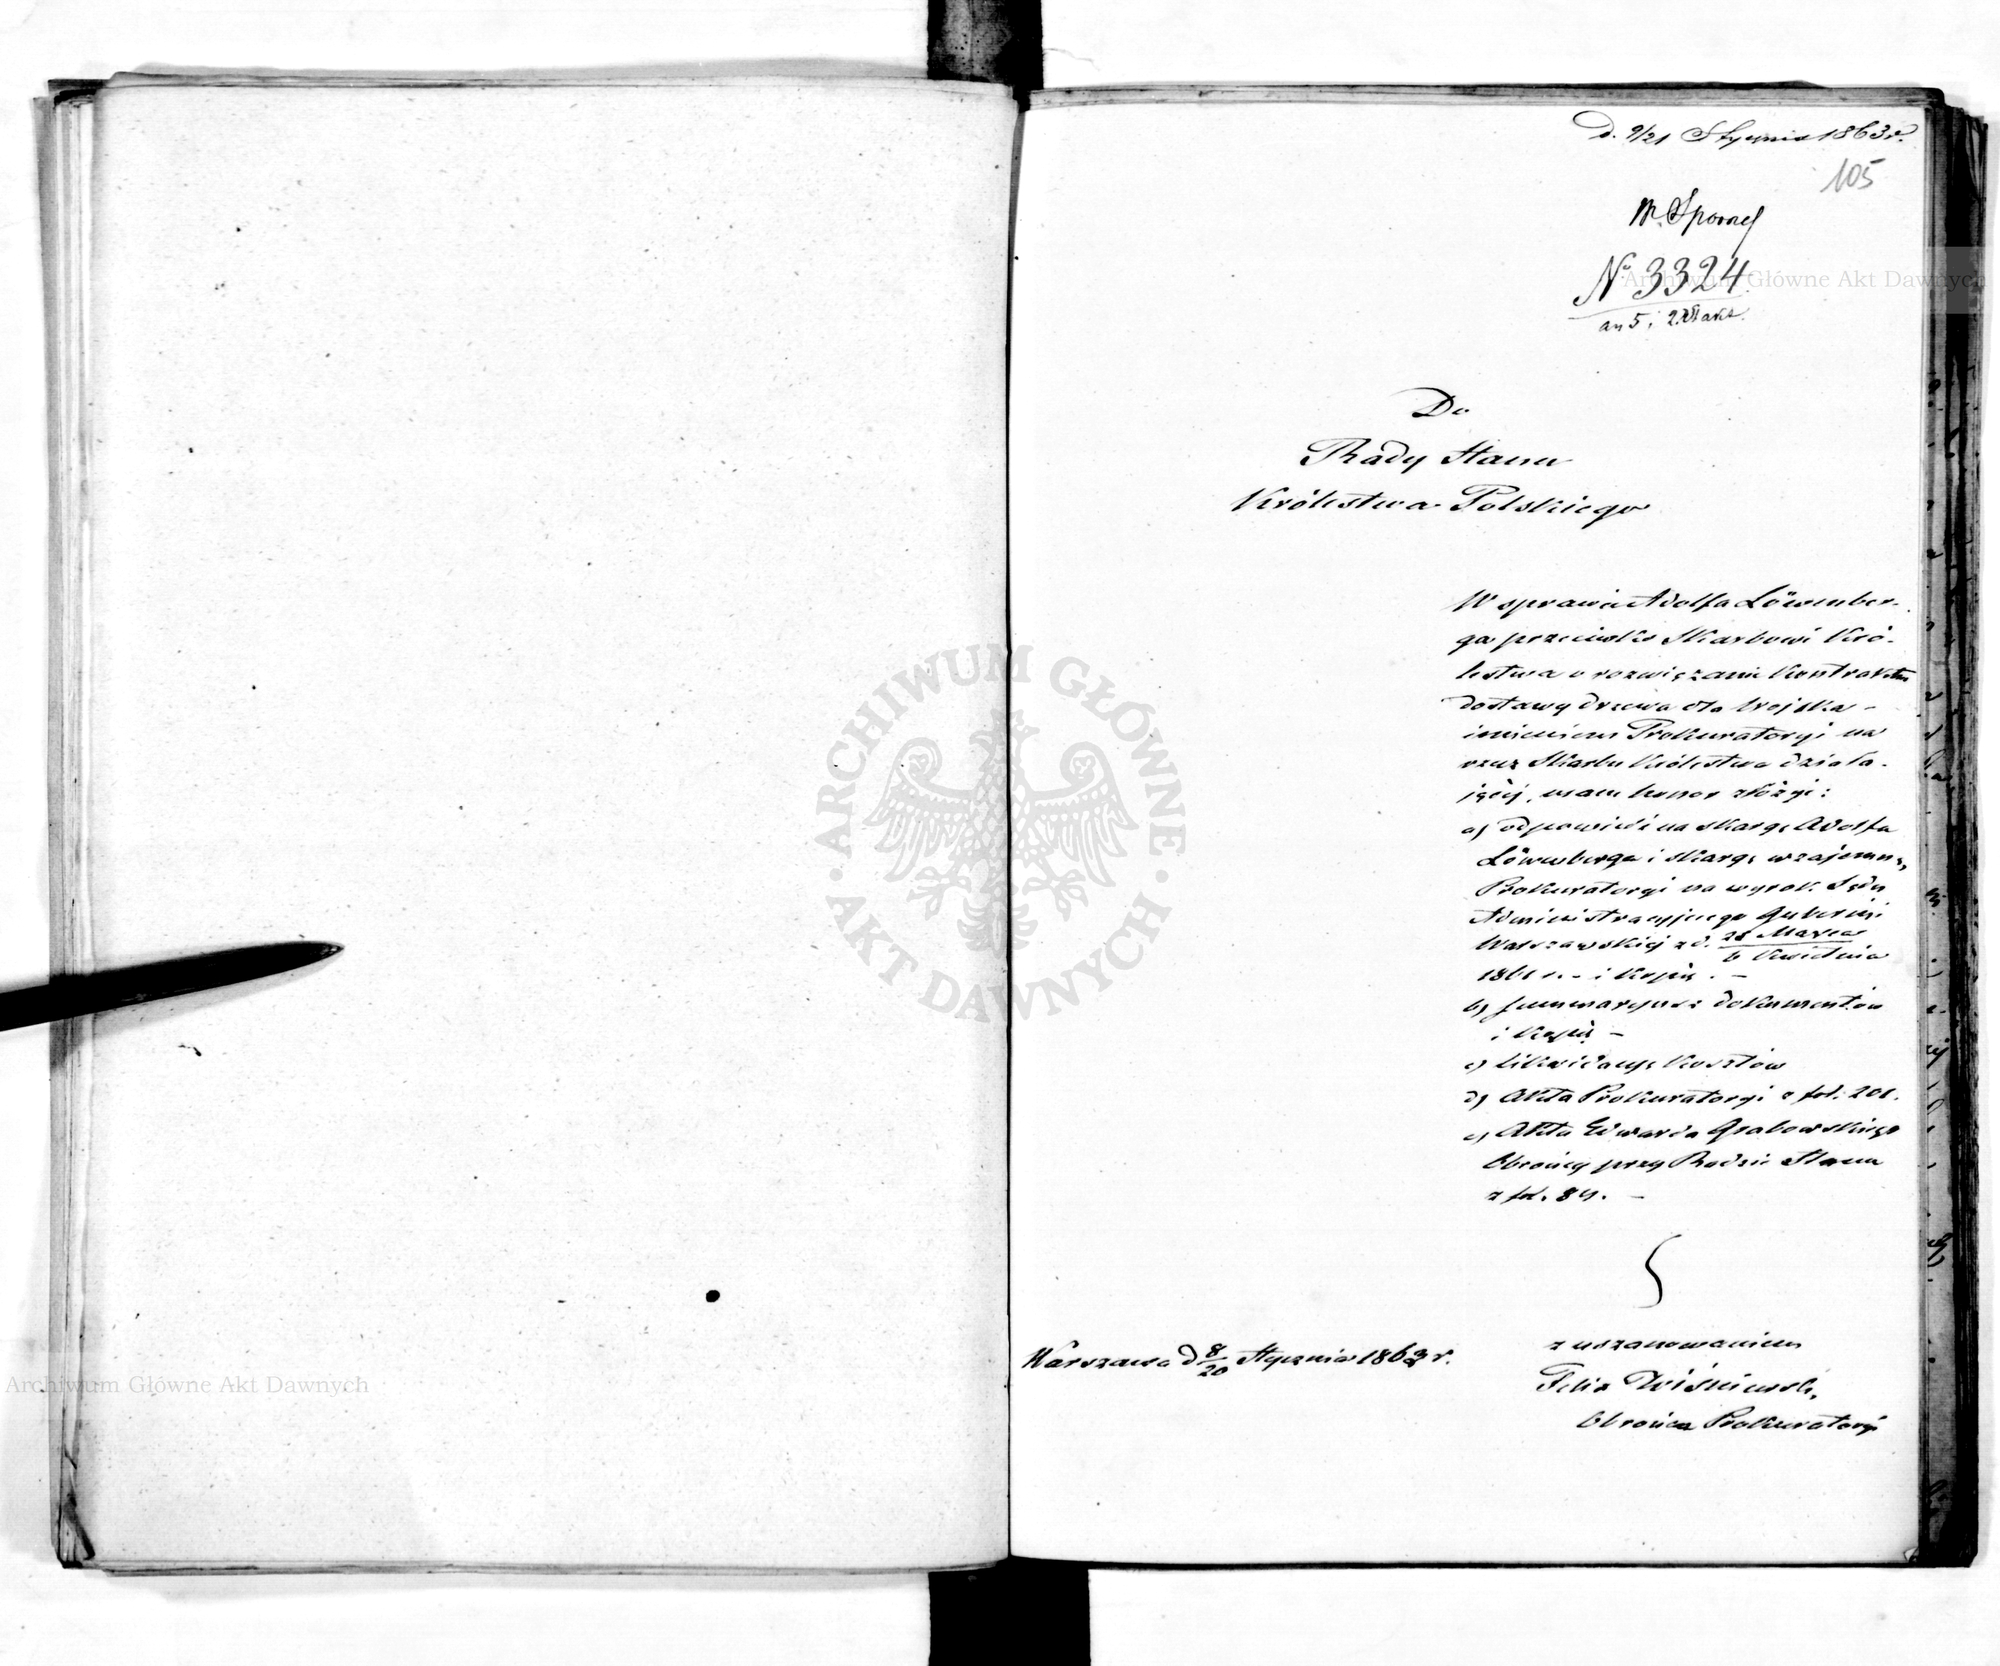 d. 9/21 Stycznia 1863 r.
105
W. Sporny
Nº 3324
an 5 i 2 akt.
Do
Rady Stanu
Królestwa Polskiego
W sprawie Adolfa Löwenber-
ga przeciwko Skarbowi Kró-
lestwa o rozwiązanie kontraktu
dostawy drzewa dla wojska -
imieniem Prokuratoryi na
rzecz Skarbu Królestwa działa-
jącej, mam honor złożyć:
a) odpowiedź na skargę Adolfa
Löwenberga i skargę wzajemną
Prokuratoryi na wyrok Sądu
Administracyjnego Gubernii
Warszawskiej z d. 25 Marca / 6 Kwietnia
1861 r. - i kopią. -
b) summaryusz dokumentów
i kopią -
c) likwidacyę kosztów
d) Akta Prokuratoryi z fol. 201.
e) Akta Edwarda Grabowskiego
Obrońcy przy Radzie Stanu
z fol. 84. -
z uszanowaniem
Warszawa d 8/20 Stycznia 1863 r.
Felix Wiśniewski,
Obrońca Prokuratoryi
ARCHIWUM GŁÓWNE AKT DAWNYCH
Archiwum Główne Akt Dawnych
Archiwum Główne Akt Dawnych